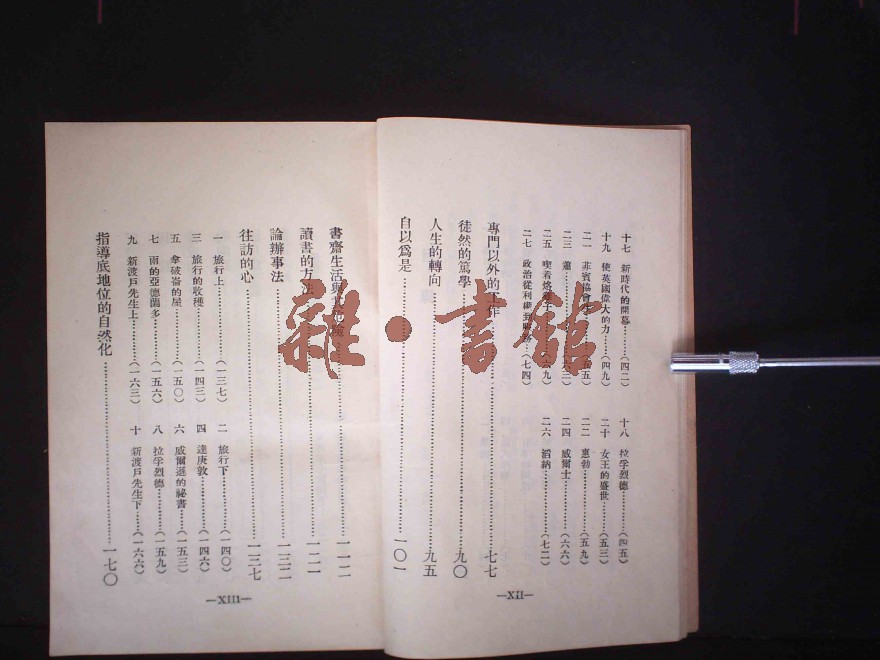 十七 新時代的開幕……(四二)
十八 拉孚烈德……(四五)
十九 使英國偉大的力……(四九)
二十 女王的盛世……(五三)
二一 菲賓協會
二二 惠勃……(五九)
二三 蕭……(六三)
二四 威爾士……(六六)
二五 喫着烙
二六 滔納……(七二)
二七 政治從利……(七四)
專門以外的工作……七七
徒然的篤學……九〇
人生的轉向……九五
自以爲是……一〇一
—XII—
書齋生活與其……一一二
讀書的方法……一二一
論辦事法……一三二
往訪的心……一三七
一 旅行上……(一三七)
二 旅行下……(一四〇)
三 旅行的收穫……(一四三)
四 達庚敦……(一四六)
五 拿破崙的屋……(一五〇)
六 威爾遜的祕書……(一五三)
七 雨的亞德蘭多……(一五六)
八 拉孚烈德……(一五九)
九 新渡戶先生上……(一六三)
十 新渡戶先生下……(一六六)
指導底地位的自然化……一七〇
—XIII—
雜·書館